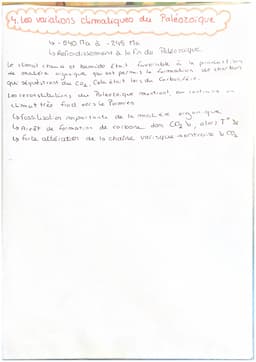 4. Les variations climatiques du Paléozoïque
↳ -540 Ma à -245 Ma
↳ Refroidissement à la fin du Paléozoïque
Le climat chaud et humide était favorable à la production
de matière organique qui est permis la formation de charbon
que séquestrant du CO2. Cela était lors du Carbonifère.
Les reconstitutions du Paléozoïque montrent, au contraire un
climat très froid vers le Permien
↳ fossilisation importante de la matière organique
↳ Arrêt de formation de carbone donc CO2 ↘, alors T° ↘
↳ forte altération de la chaîne varisque montraine ↳ CO2